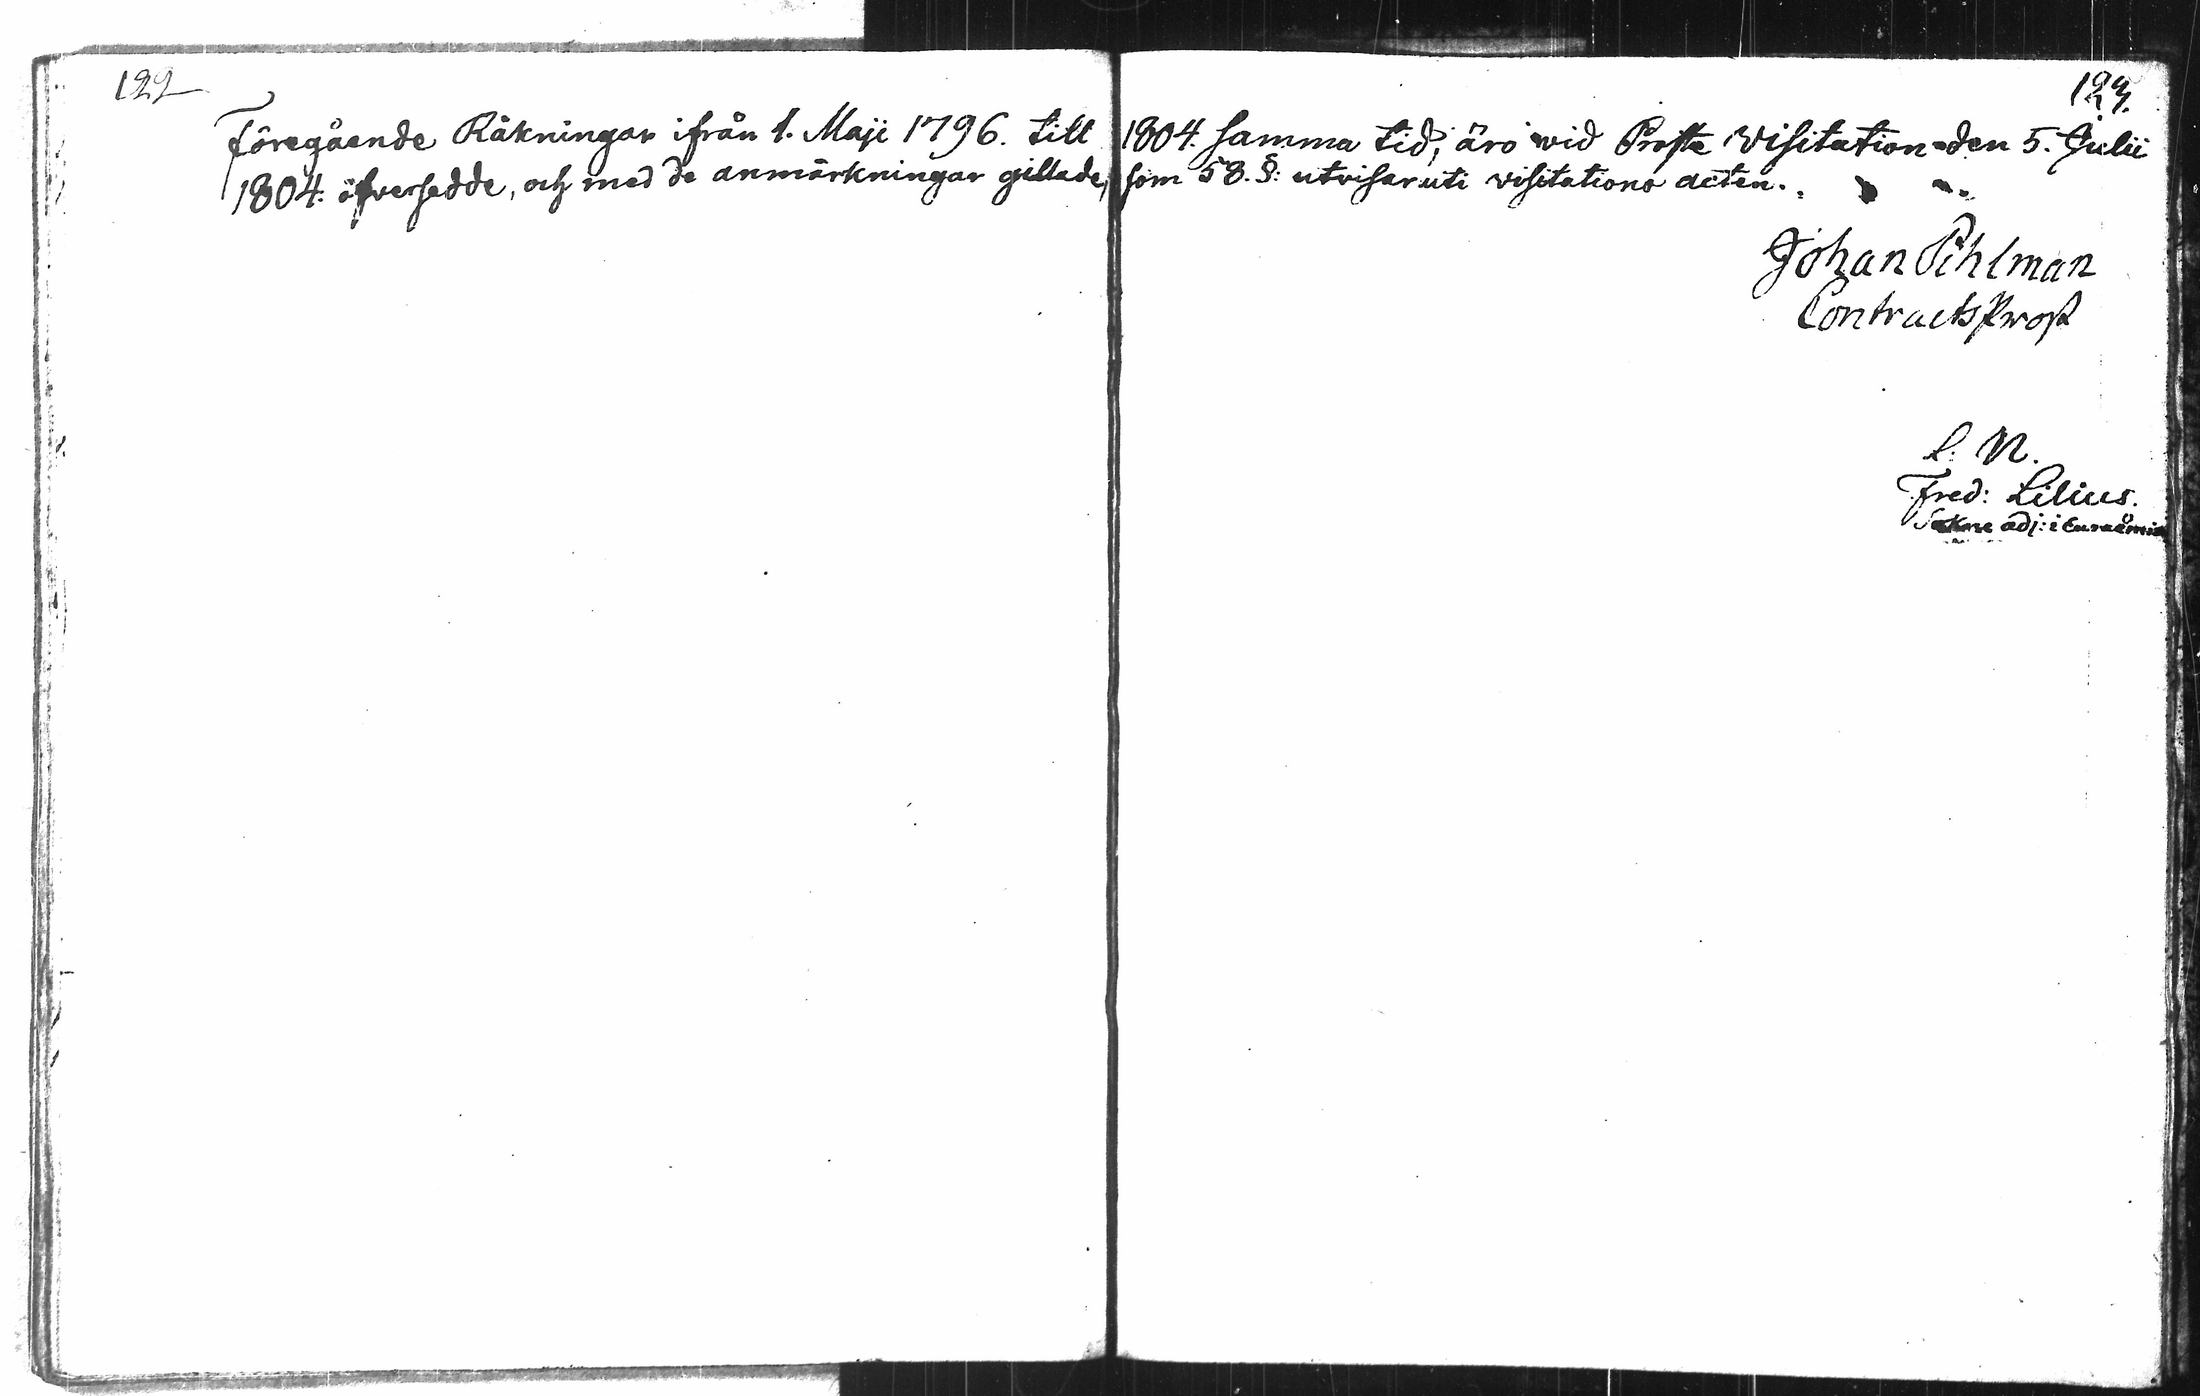 122
123.
Föregående Räkningar ifrån 1. Maji 1796. till 1804. samma tid, äro wid Proste Visitation den 5. Julii
1804. öfversedde, och med de anmärkningar gillade, som 58. §: utvisar uti visitations acten.
Johan Pihlman
ContractsProst
L. N.
Fred: Lilius.
adj: i